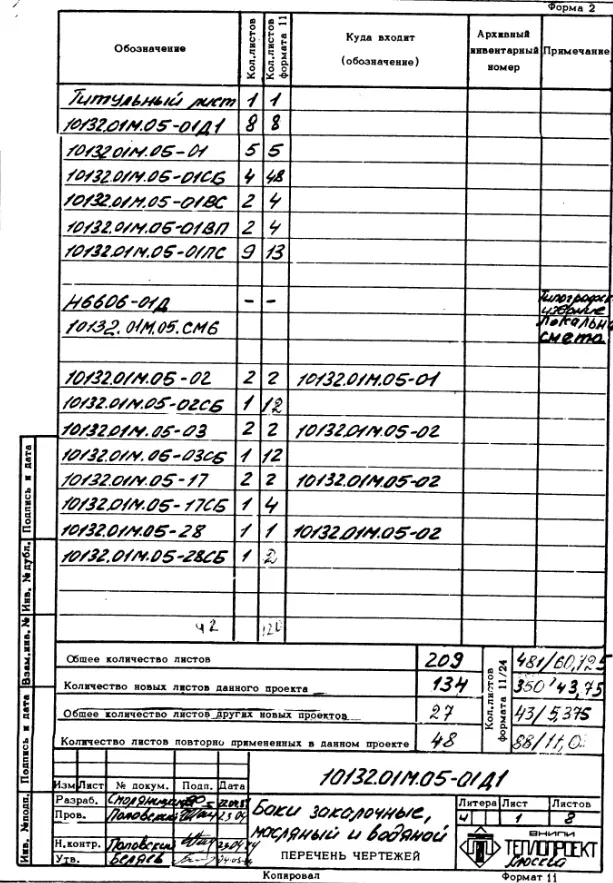 Форма 2
Обозначение Кол.листов Кол.листов формата 11 Куда входит (обозначение) Архивный инвентарный номер Примечание
Титульный лист 1 1
10132.01М.05-01Д1 8 8
10132.01М.05-01 5 5
10132.01М.05-01СБ 4 48
10132.01М.05-01ВС 2 4
10132.01М.05-01ВП 2 4
10132.01М.05-01ПС 9 13
Н6606-01Д - -
10132.01М.05.СМ6 Локальн
смета
10132.01М.05-02 2 2 10132.01М.05-01
10132.01М.05-02СБ 1 12
10132.01М.05-03 2 2 10132.01М.05-02
10132.01М.05-03СБ 1 12
10132.01М.05-17 2 2 10132.01М.05-02
10132.01М.05-17СБ 1 4
10132.01М.05-28 1 1 10132.01М.05-02
10132.01М.05-28СБ 1 2
42 120
Общее количество листов 209 Кол.листов формата 11/24 481/60,125
Количество новых листов данного проекта 134 350 43,75
Общее количество листов других новых проектов 27 43/5,375
Количество листов повторно примененных в данном проекте 48 88/11,0
Инв. №подп. Подпись и дата Взам.инв.№ Инв. №дубл. Подпись и дата
10132.01М.05-01Д1
Изм Лист № докум. Подп. Дата
Разраб.
Пров.
Н.контр.
Утв. Беляев
Баки закалочные,
масляный и водяной
ПЕРЕЧЕНЬ ЧЕРТЕЖЕЙ
Литера Лист Листов
Ч 1 8
ВНИПИ
ТЕПЛОПРОЕКТ
Москва
Копировал Формат 11